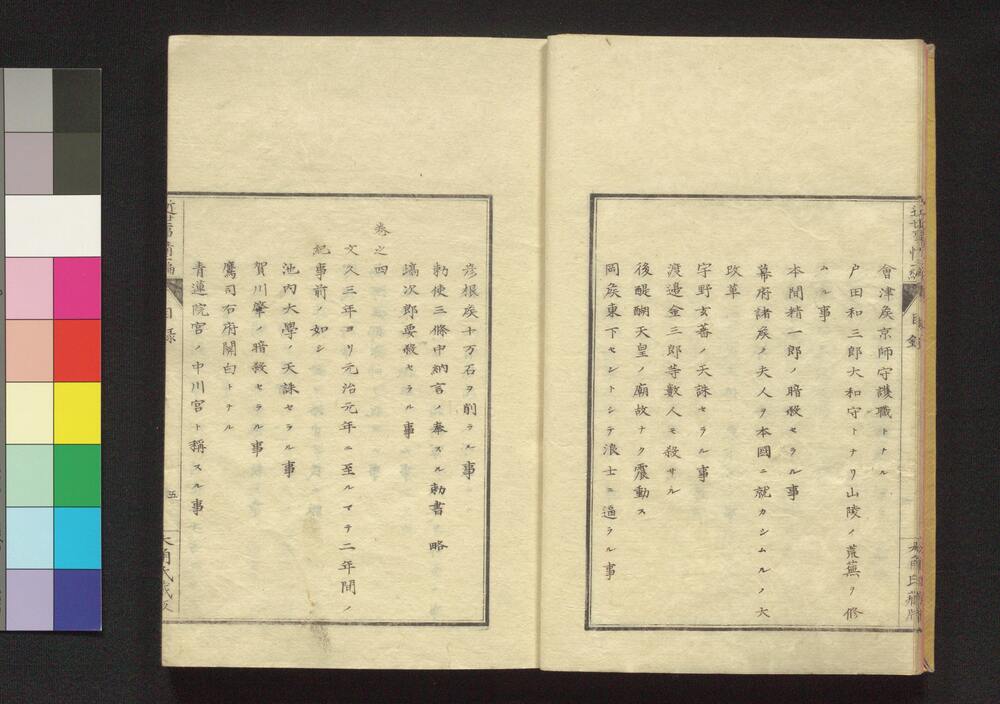 會津侯京師守護職トナル
戸田和三郎大和守トナリ山陵ノ荒蕪ヲ修
ムル事
本間精一郎ノ暗殺セラル事
幕府諸侯ノ夫人ヲ本國ニ就カシムルノ大
改革
宇野玄蕃ノ天誅セラル事
渡邉金三郎等數人モ殺サル
後醍醐天皇ノ廟故ナク震動ス
岡侯東下セントシテ浪士ニ逼ラル事
彦根侯十万石ヲ削ラル事
勅使三條中納言ノ奉スル勅書ノ略
塙次郎要殺セラル事
卷之四
文久三年ヨリ元治元年ニ至ルマテ二年間ノ
紀事前ノ如シ
池内大學ノ天誅セラル事
賀川肇ノ暗殺セラル事
鷹司右府関白トナル
青蓮院宮ノ中川宮ト稱スル事
目録
五